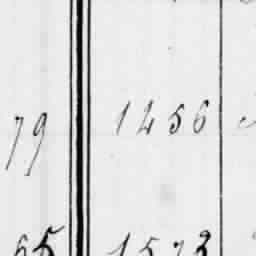 79 1456
65 1573